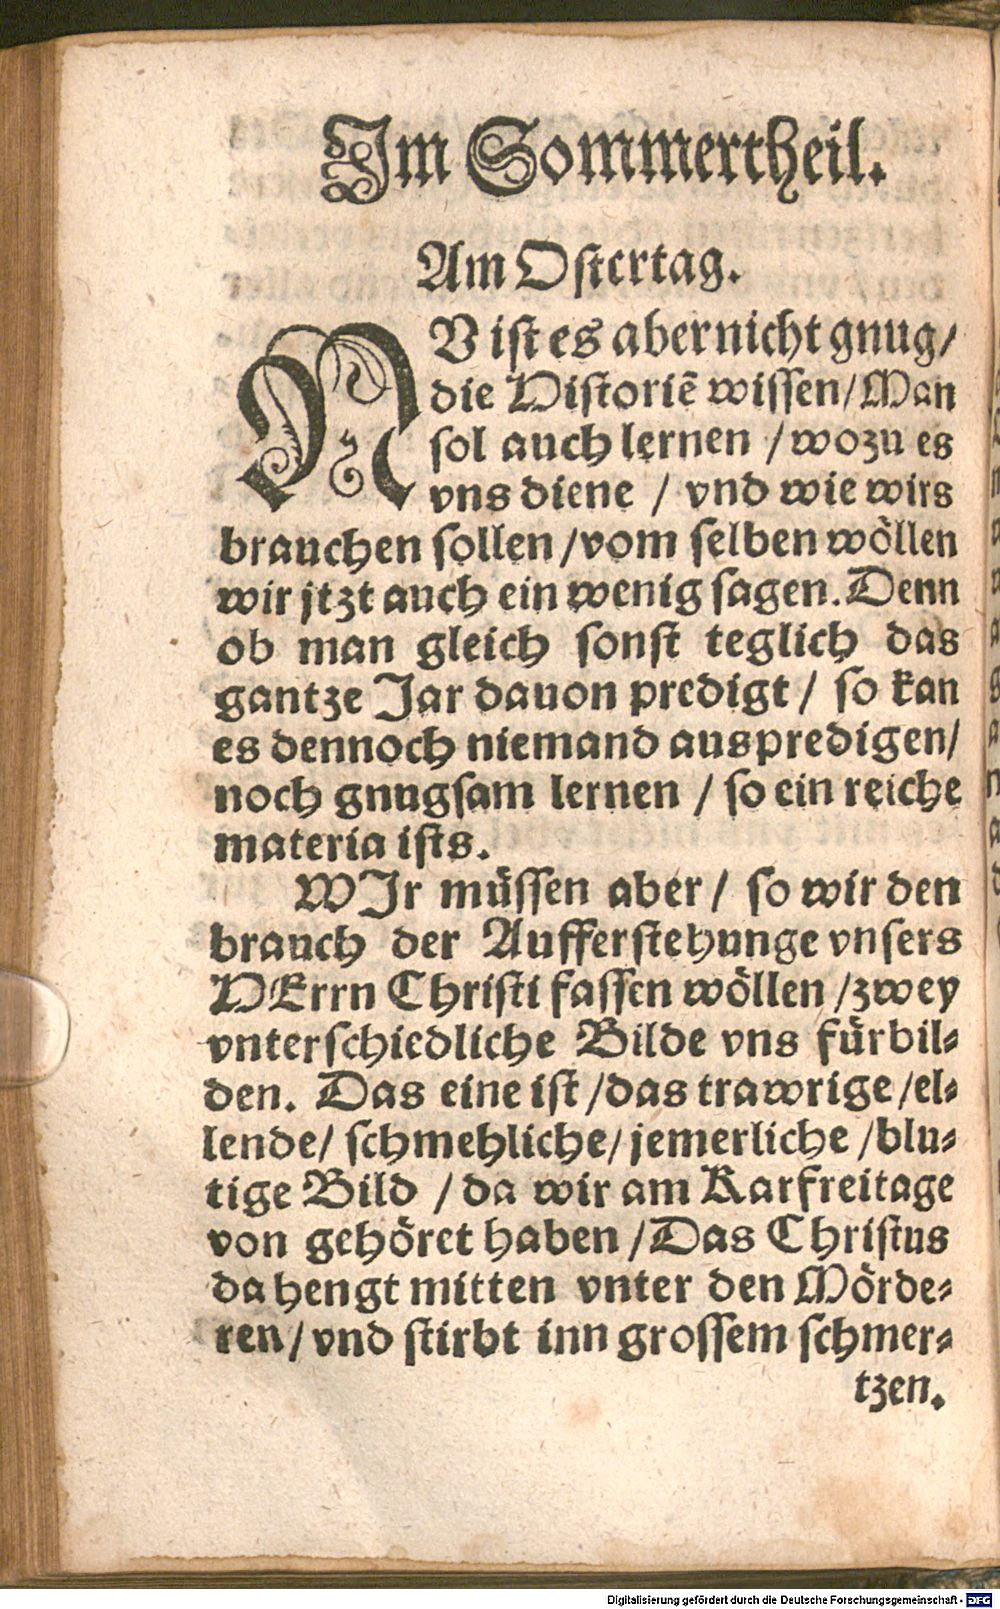 Im Sommertheil.
Am Ostertag.
NV ist es aber nicht gnug/
die Historiē wissen/Man
sol auch lernen / wozu es
vns diene / vnd wie wirs
brauchen sollen /vom selben wöllen
wir jtzt auch ein wenig sagen. Denn
ob man gleich sonst teglich das
gantze Jar dauon predigt / so kan
es dennoch niemand auspredigen/
noch gnugsam lernen / so ein reiche
materia ists.
WIr müssen aber / so wir den
brauch der Aufferstehunge vnsers
HErrn Christi fassen wöllen /zwey
vnterschiedliche Bilde vns fürbil⸗
den. Das eine ist /das trawrige /el⸗
lende/ schmehliche/ jemerliche /blu⸗
tige Bild / da wir am Karfreitage
von gehöret haben /Das Christus
da hengt mitten vnter den Mörde⸗
ren/ vnd stirbt inn grossem schmer⸗
tzen.
Digitalisierung gefördert durch die Deutsche Forschungsgemeinschaft - DFG